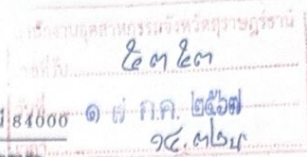 สำนักงานอุตสาหกรรมจังหวัดสุราษฎร์ธานี
เลขที่รับ ๕๓๕๓
วันที่ ๑ ๗ ก.ค. ๒๕๖๗
84000
เวลา ๑๔.๓๒น